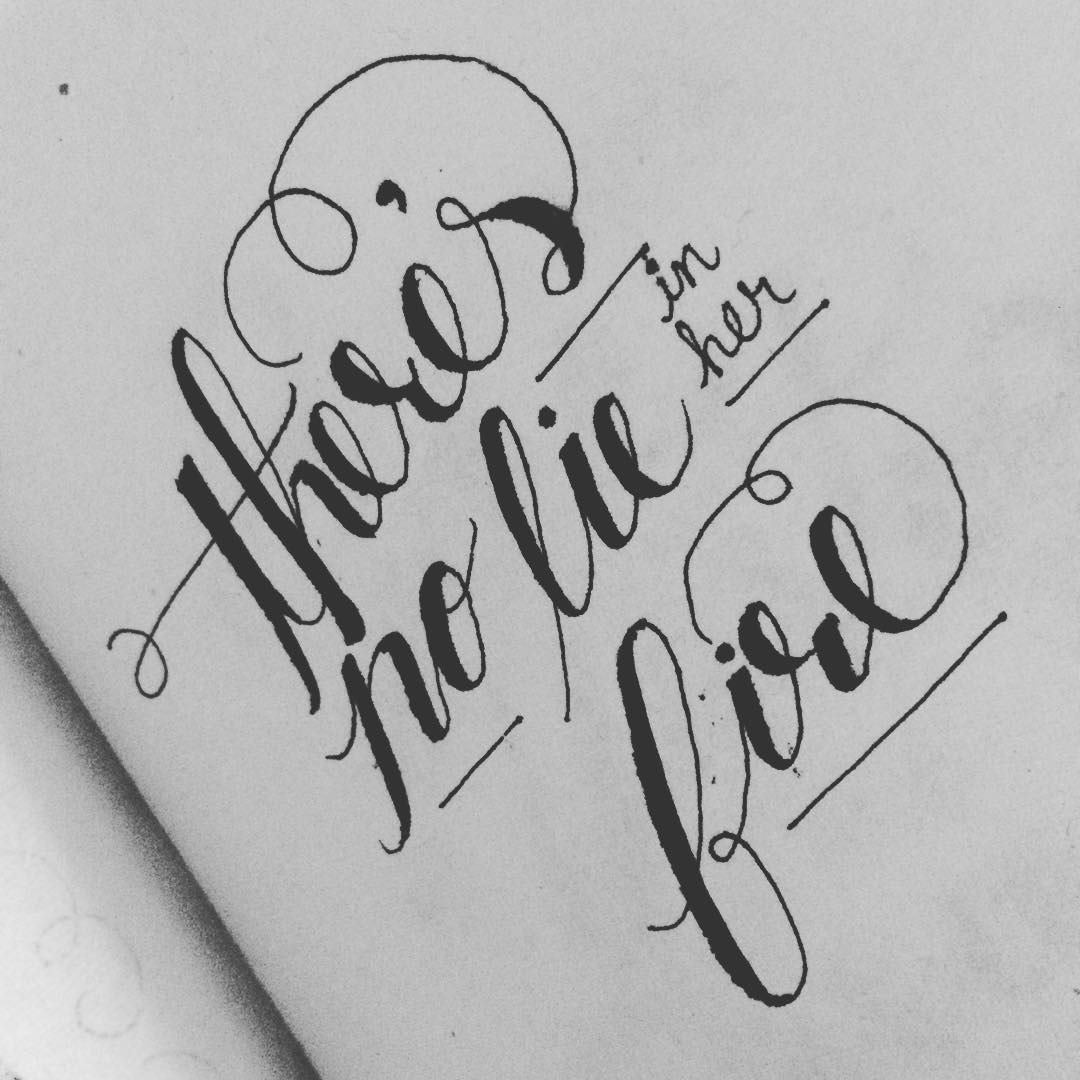 there's
no lie
in
her
fire